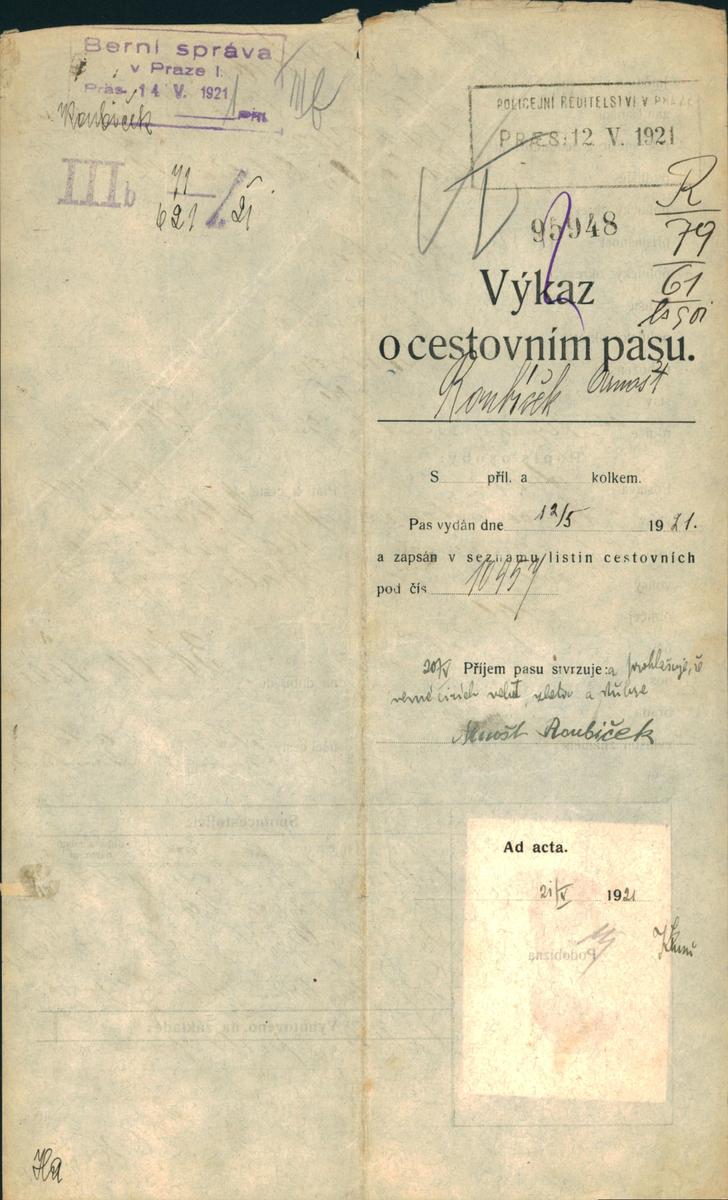 Berní správa
v Praze I.
Präs. 14 V. 1921
Roubíček
IIIb
71
621 / 21
POLICEJNÍ ŘEDITELSTVÍ V PRAZE
PRÆS: 12 V. 1921
95948
R
79
61
Výkaz
o cestovním pasu.
Roubíček Arnošt
S příl. a kolkem.
Pas vydán dne 12/5 1921.
a zapsán v seznamu listin cestovních
pod čís 10457
20/V Příjem pasu stvrzuje: a prohlašuje, že
valut, zlata a
Arnošt Roubíček
Ad acta.
21/V 1921
Podobizna
Spolucestující:
Vyhotoveno na základě:
Ha